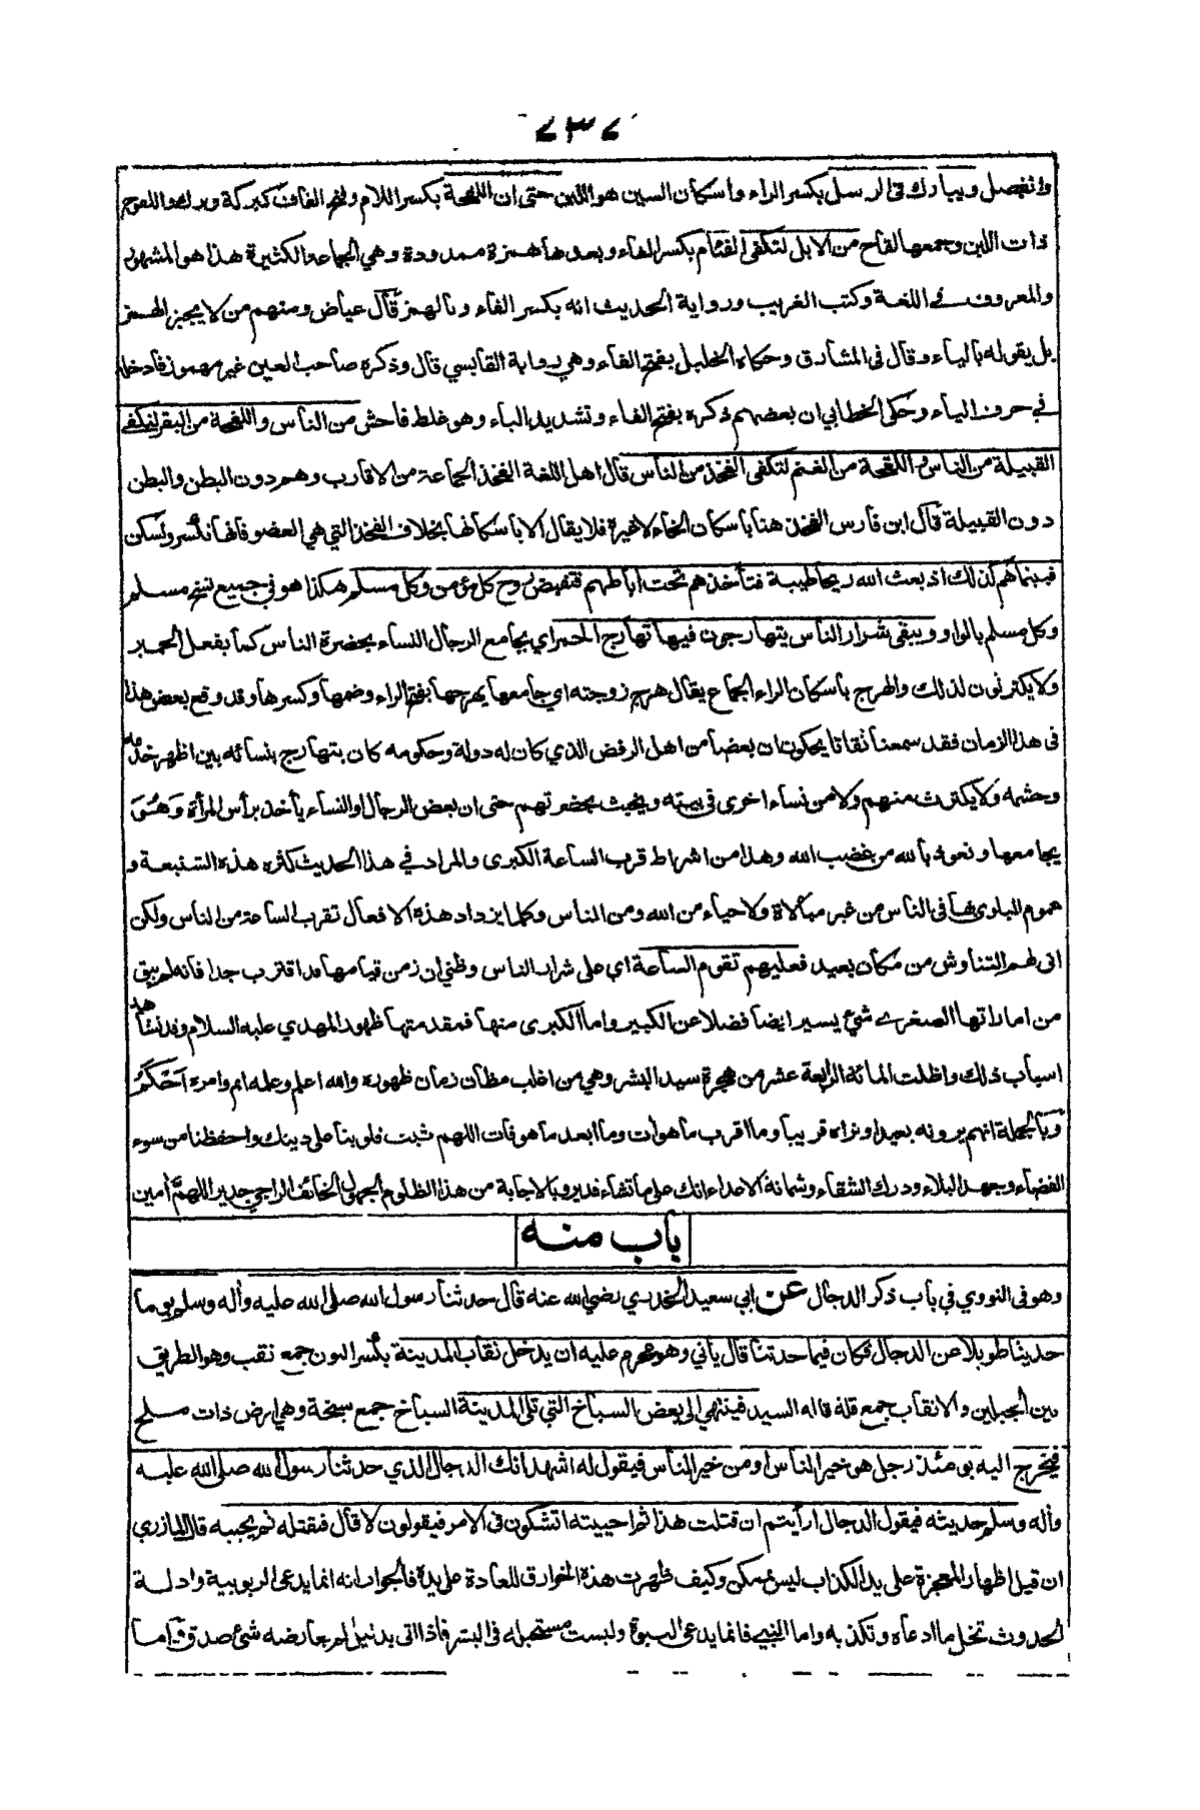 ٧٣٧
وانفصل ويبارك في الرسل بكسر الراء واسكان السين هو اللبن حتى ان اللقحة بكسر اللام وفتح القاف كبركة وبركة واللقوح
ذات اللبن وجمعها لقاح من الابل لتكفى الفئام بكسر الفاء وبعدها همزة ممدودة وهي الجماعة الكثيرة هذا هو المشهور
والمعروف في اللغة وكتب الغريب ورواية الحديث انه بكسر الفاء وبالهمز قال عياض ومنهم من لا يجيز الهمز
بل يقوله بالياء وقال في المشارق وحكاه الخليل بفتح الفاء وهي رواية القابسي قال وذكره صاحب العين غير مهموز فادخله
في حرف الياء وحكى الخطابي ان بعضهم ذكره بفتح الفاء وتشديد الياء وهو غلط فاحش من الناس واللقحة من البقر لتكفى
القبيلة من الناس واللقحة من الغنم لتكفى الفخذ من الناس قال اهل اللغة الفخذ الجماعة من الاقارب وهم دون البطن والبطن
دون القبيلة قال ابن فارس الفخذ هنا باسكان الخاء لا غير فلا يقال الا باسكانها بخلاف الفخذ التي هي العضو فانها تكسر وتسكن
فبينما هم كذلك اذ بعث الله ريحا طيبة فتأخذهم تحت اباطهم فتقبض روح كل مؤمن وكل مسلم هكذا هو في جميع نسخ مسلم
وكل مسلم بالواو ويبقى شرار الناس يتهارجون فيها تهارج الحمر اي يجامع الرجال النساء بحضرة الناس كما يفعل الحمير
ولا يكترثون لذلك والهرج باسكان الراء الجماع يقال هرج زوجته اي جامعها يهرجها بفتح الراء وضمها وكسرها وقد وقع بعض هذا
في هذا الزمان فقد سمعنا ثقاتا يحكون ان بعضا من اهل الرفض الذي كان له دولة وحكومة كان يتهارج بنسائه بين اظهر خدمه
وحشمه ولا يكترث منهم ولا من نساء اخرى في بيته ويخبث بحضرتهم حتى ان بعض الرجال او النساء يأخذ برأس المرأة وهو
يجامعها ونعوذ بالله من غضب الله وهذا من اشراط قرب الساعة الكبرى والمراد في هذا الحديث كثرة هذه الشنيعة و
عموم البلوى بها في الناس من غير مبالاة ولا حياء من الله ومن الناس وكلما يزداد هذه الافعال تقرب الساعة من الناس ولكن
انى لهم التناوش من مكان بعيد فعليهم تقوم الساعة اي على شرار الناس وظني ان زمن قيامها قد اقترب جدا فانه لم يبق
من اماراتها الصغرى شيء يسير ايضا فضلا عن الكبير واما الكبرى منها فمقدمتها ظهور المهدي عليه السلام وقد نشأ
اسباب ذلك واظلت المائة الرابعة عشر من هجرة سيد البشر وهي من اغلب مظان زمان ظهوره والله اعلم وعلمه اتم وامره احكم
وبالجملة انهم يرونه بعيدا ونراه قريبا وما اقرب ما هو ات وما ابعد ما هو فات اللهم ثبت قلوبنا على دينك واحفظنا من سوء
القضاء وجهد البلاء ودرك الشقاء وشماتة الاعداء انك على ما تشاء قدير وبالاجابة من هذا الظلوم الجهول الخائف الراجي جدير اللهم أمين
باب منه
وهو في النووي في باب ذكر الدجال عن ابي سعيد الخدري رضي الله عنه قال حدثنا رسول الله صلى الله عليه وأله وسلم يوما
حديثا طويلا عن الدجال فكان فيما حدثنا قال يأتي وهو محرم عليه ان يدخل نقاب المدينة بكسر النون جمع نقب وهو الطريق
بين الجبلين والانقاب جمع قلة قاله السيد فينتهي الى بعض السباخ التي تلي المدينة السباخ جمع سبخة وهي ارض ذات ملح
فيخرج اليه يومئذ رجل هو خير الناس او من خير الناس فيقول له اشهد انك الدجال الذي حدثنا رسول الله صلى الله عليه
وأله وسلم حديثه فيقول الدجال ارأيتم ان قتلت هذا ثم احييته اتشكون في الامر فيقولون لا قال فيقتله ثم يحييه قال المازري
ان قيل اظهار المعجزة على يد الكذاب ليس بممكن وكيف ظهرت هذه الخوارق للعادة على يده فالجواب انه انما يدعى الربوبية وادلة
الحدوث تخل ما ادعاه وتكذبه واما النبي فانما يدعى النبوة وليست مستحيلة في البشر فاذا اتى بدليل لم يعارضه شيء صدق واما